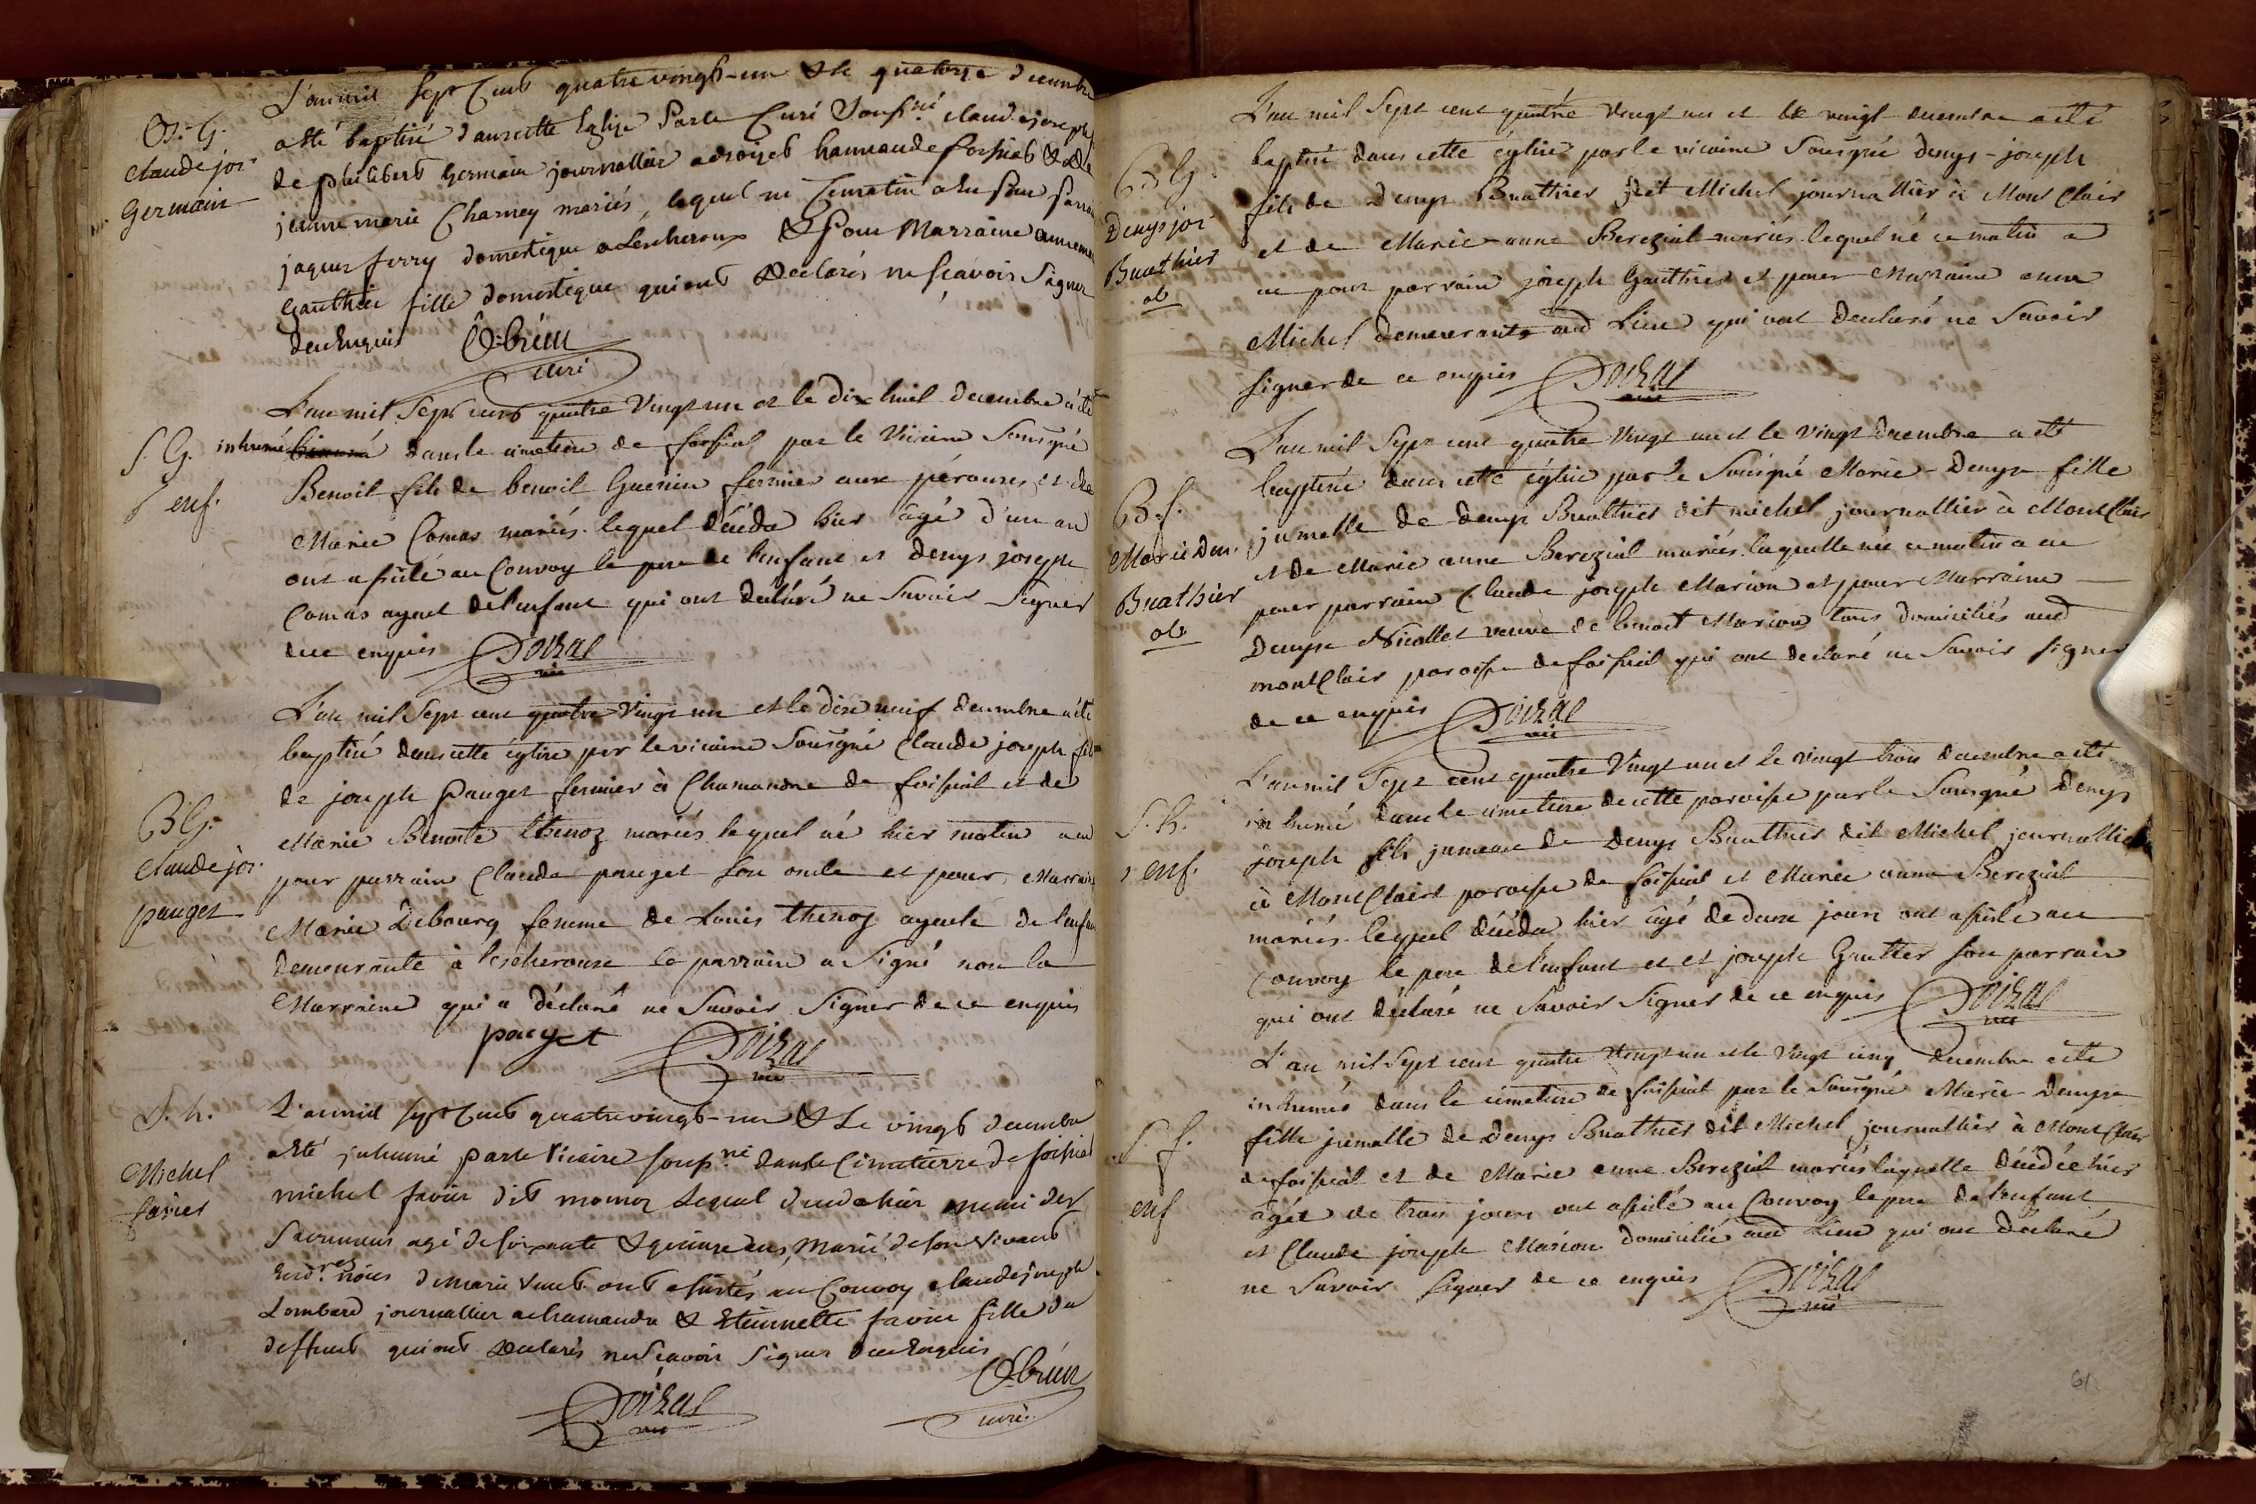 B. G.
Claude jos.
Germain
L'an mil sept Cent quatre vingt-un & le quatorze decembre
a été baptisé dans cette Eglise par le Curé Soussné. claude joseph
de philibert Germain journallier a droiset hameau de foissiat & de
jeanne marie Charney mariés, lequel né Ce matin a eu pour parrain
jaques ferry domestique a Lescheroux & pour Marraine
Gauthier fille domestique qui ont declarés ne scavoir Signer
de ce Enquis
curé
S. G.
enf.
L'an mil Sept cent quatre Vingt un et le dix huit decembre a été
inhumé dans le cimetiere de foissiat par le Vicaire Sousigné
Benoit fils de benoit Guerin fermier aux pérouses et de
Marie Comas mariés. lequel déceda hier âgé d'un an
ont assisté au Convoy le pere de l'enfant et denys joseph
Comas ayeul de l'enfant qui ont déclaré ne Savoir Signer
de ce enquis
vic
B. G.
Claude jos.
pauget
L'an mil Sept cent quatre Vingt un et le dix neuf decembre a été
baptisé dans cette église par le vicaire Sousigné Claude joseph fils
de joseph pauget fermier à Chamandre de foissiat et de
Marie Benoite thenoz mariés. lequel né hier matin a eu
pour parrain Claude pauget son oncle et pour Marraine
Marie Debourg femme de Louis thenoz ayeule de l'enfant
demeurante à lescherouse le parrain a Signé non la
Marraine qui a déclaré ne Savoir Signer de ce enquis
pauget
vic
S. h.
Michel
favier
L'an mil sept Cent quatre vingt-un & Le vingt decembre
a été inhumé par le Vicaire soussné dans le Cimetierre de foissiat
michel favier dit momoz Lequel deceda hier muni des
Sacremens agé de soixante & quinze ans, Marié de son Vivant
ont assistés au Convoy claude joseph
Lombard journallier a chamandre & Etiennette favier fille du
deffunt qui ont declarés ne Scavoir Signer de ce Enquis
curé
vic
B G
Denys jos.
Buathier
ob
L'an mil Sept cent quatre vingt un et le vingt decembre a été
baptisé dans cette église par le vicaire Sousigné denys-joseph
fils de denys Buathier dit Michel journallier à Mont Clair
et de Marie-anne Bereziat mariés. lequel né ce matin a
eu pour parrain joseph Gauthier et pour Marraine anne
Michel demeurants aud Lieu qui ont declaré ne Savoir
signer de ce enquis
vic
B. f.
Marie Den.
Buathier
ob
L'an mil Sept cent quatre Vingt un et le vingt decembre a été
baptisée dans cette église par le Sousigné Marie-Denyse fille
jumelle de denys Buathier dit michel journallier à Mont Clair
et de Marie anne Bereziat mariés. laquelle née ce matin a eu
pour parrain Claude joseph Marion et pour Marraine
Denyse Nicollet veuve de benoit Marion tous domiciliés aud
mont Clair paroisse de foissiat qui ont declaré ne Savoir signer
de ce enquis
vic
S. h.
1 enf.
L'an mil Sept cent quatre Vingt un et le vingt trois decembre a été
inhumé dans le cimetiere de cette paroisse par le Sousigné Denys
joseph fils jumeau de denys Buathier dit Michel journallier
à Mont Clair paroisse de foissiat et Marie anne Bereziat
mariés. lequel déceda hier âgé de deux jours ont assisté au
Convoy le pere de l'enfant et et joseph Gautier son parrain
qui ont déclaré ne Savoir Signer de ce enquis
vic
S. f.
enf
L'an mil Sept cent quatre Vingt un et le vingt cinq decembre a été
inhumée dans le cimetiere de foissiat par le Sousigné Marie Denyse
fille jumelle de denys Buathier dit Michel journallier à Mont Clair
de foissiat et de Marie anne Bereziat mariés laquelle décédée hier
âgée de trois jours ont assisté au Convoy le pere de l'enfant
et Claude joseph Marion domicilié aud Lieu qui ont déclaré
ne Savoir Signer de ce enquis
vic
61